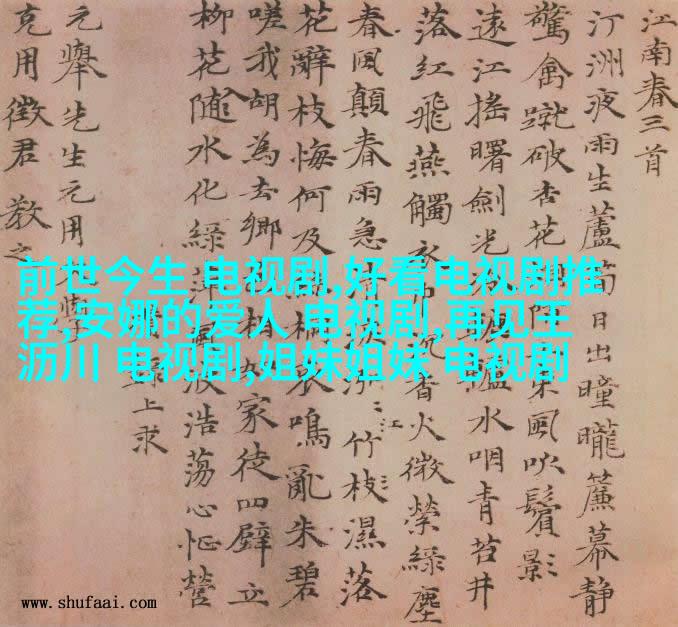 江南春三首
汀洲夜雨生蘆笋日出曈曨簾幕靜
驚禽蹴破杏花東風吹鬢影
遠江搖曙劍光轆轤水咽青苔井
落紅飛燕觸衣巾沉香火微縈綠塵
春風顛春雨急江竹枝濕落
花辭枝悔何及絲桐哀鳴亂朱碧
嗟我胡為去鄉相如家徒四壁立
柳花隨水化綠萍風波浩蕩心怔營
上求
元舉先生元用
克用徵君 教之
前世今生 电视剧,好看电视剧推
荐,安娜的爱人 电视剧,再见王
沥川 电视剧,姐妹姐妹 电视剧
www.shufaai.com